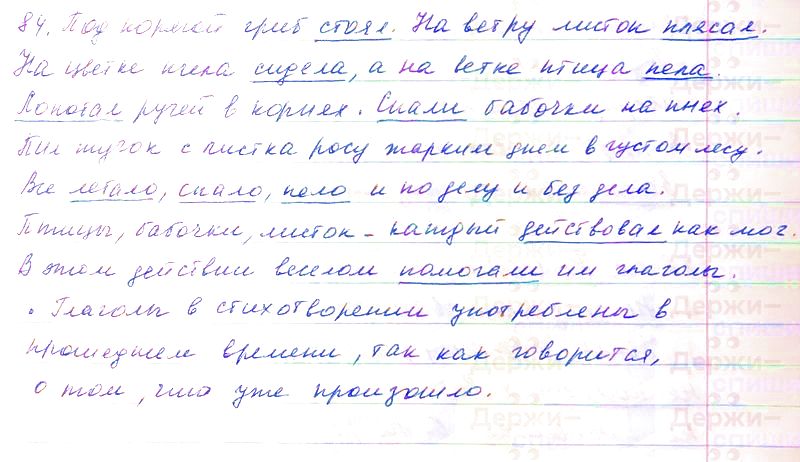 84. Под корягой гриб стоял. На ветру листок плясал.
На цветке пчела сидела, а на ветке птица пела.
Лопотал ручей в корнях. Спали бабочки на пнях.
Пил жучок с листка росу жарким днем в густом лесу.
Все летало, спало, пело и по делу и без дела.
Птицы, бабочки, листок - каждый действовал как мог.
В этом действии веселом помогали им глаголы.
. Глаголы в стихотворении употреблены в
прошедшем времени, так как говорится,
о том, что уже произошло.